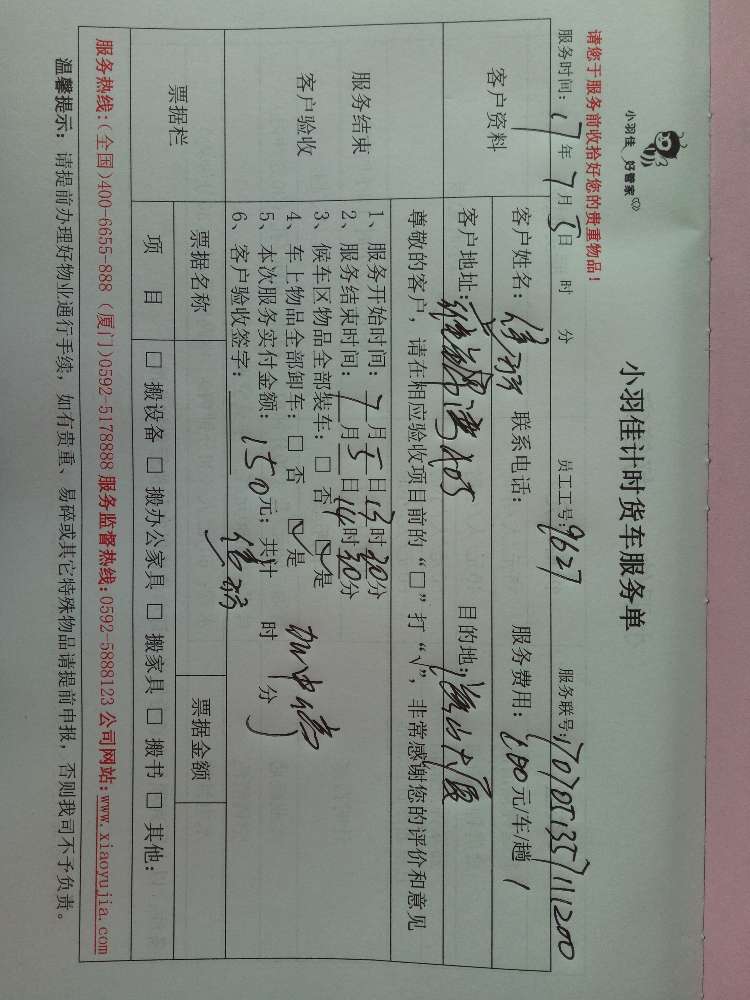 小羽佳 好管家
小羽佳计时货车服务单
请您于服务前收拾好您的贵重物品!
服务时间: 17年 7月 5日 时 分 员工工号: 9627 服务联号:
客户资料
客户姓名: 联系电话: 服务费用: 元/车/趟
客户地址: 目的地:
服务结束
客户验收
尊敬的客户, 请在相应验收项目前的“□”打“√”, 非常感谢您的评价和意见
1、服务开始时间: 7月5日13时20分
2、服务结束时间: 7月5日14时30分
3、候车区物品全部装车: □ 否 ☑ 是
4、车上物品全部卸车: □ 否 ☑ 是
5、本次服务实付金额: 150元; 共计 时 分
6、客户验收签字:
票据栏
票据名称 票据金额
项 目 □ 搬设备 □ 搬办公家具 □ 搬家具 □ 搬书 □ 其他:
服务热线:(全国)400-6655-888 (厦门)0592-5178888 服务监督热线:0592-5888123 公司网站:www.xiaoyujia.com
温馨提示: 请提前办理好物业通行手续, 如有贵重、易碎或其它特殊物品请提前申报, 否则我司不予负责。